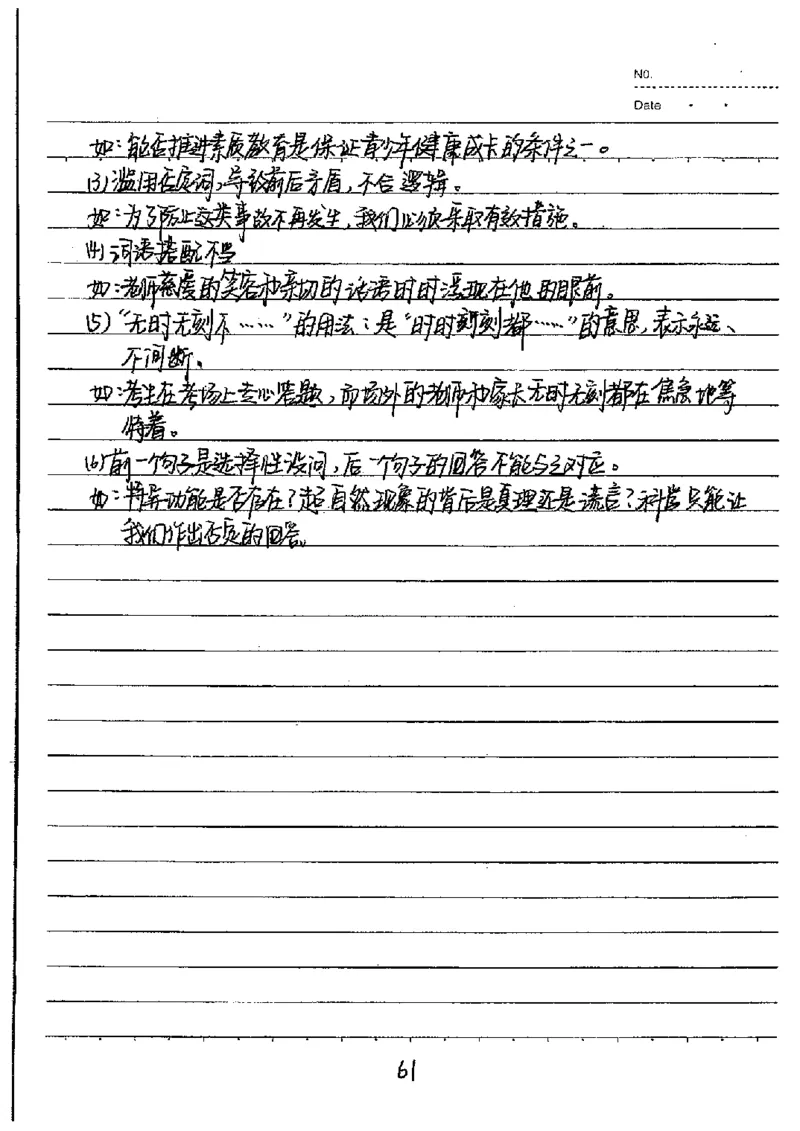 No.
Date
如：能否推进素质教育是保证青少年健康成长的条件之一。
(3)滥用否定词，导致前后矛盾，不合逻辑。
如：为了防止这类事故不再发生，我们必须采取有效措施。
(4)词语搭配不当
如：老师慈爱的笑容和亲切的话语时时浮现在他的眼前。
(5)“无时无刻不……”的用法：是“时时刻刻都……”的意思，表示永远、
不间断。
如：考生在考场上专心答题，而场外的老师和家长无时无刻都在焦急地等
待着。
(6)前一个句子是选择性设问，后一个句子的回答不能与之对应。
如：特异功能是否存在？超自然现象的背后是真理还是谎言？科学只能让
我们作出否定的回答。
61